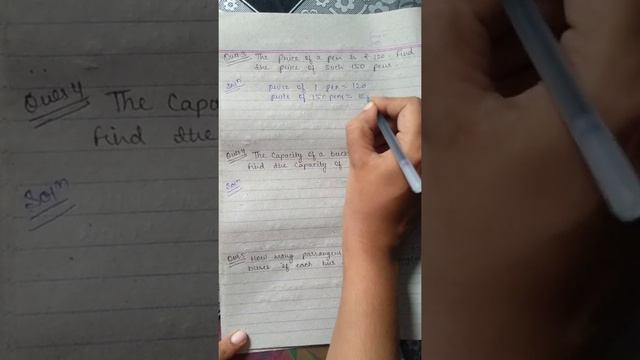 Ques 3 The price of a pen is ₹ 120. Find
the price of such 150 pens.
Solⁿ price of 1 pen = 120
price of 150 pens =
Ques 4 The Capacity of a
find the capacity of
Solⁿ
Ques 5 How many passengers
buses if each bus